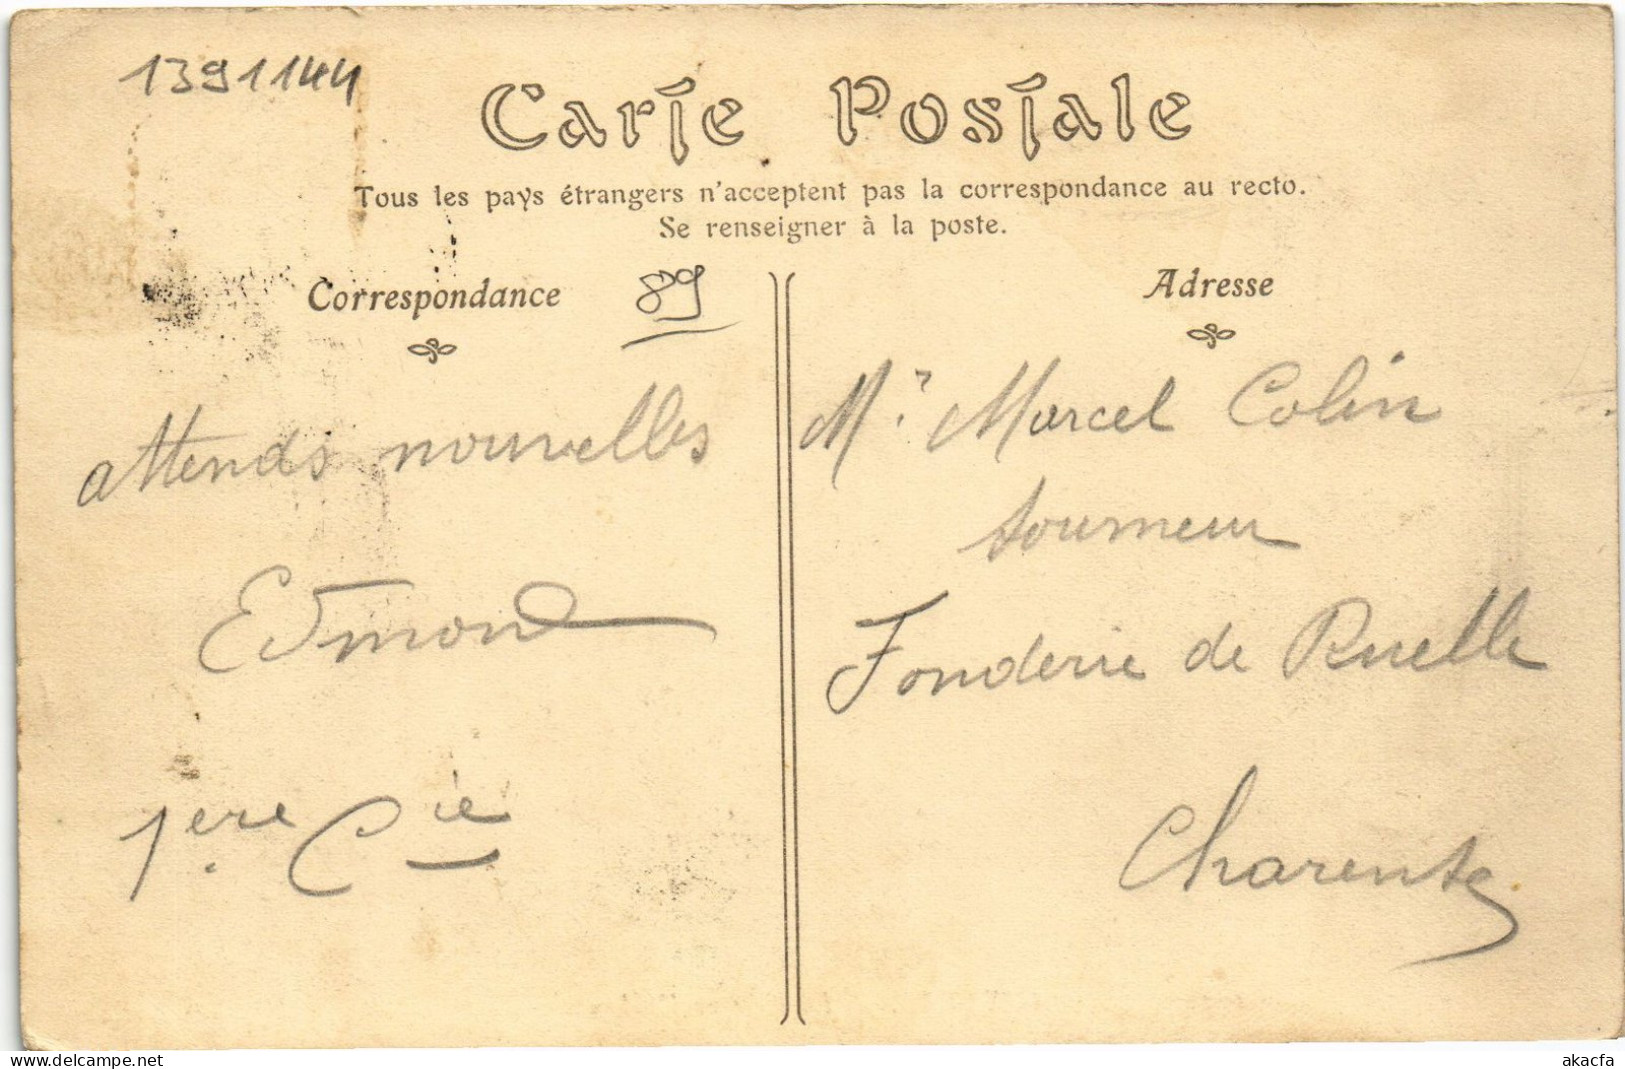 1391144
Carte Postale
Tous les pays étrangers n'acceptent pas la correspondance au recto.
Se renseigner à la poste.
Correspondance
89
Adresse
attends nouvelles
Edmond
1ère Cie
Mr Marcel Colin
tourneur
Fonderie de Ruelle
Charente
www.delcampe.net
akacfa